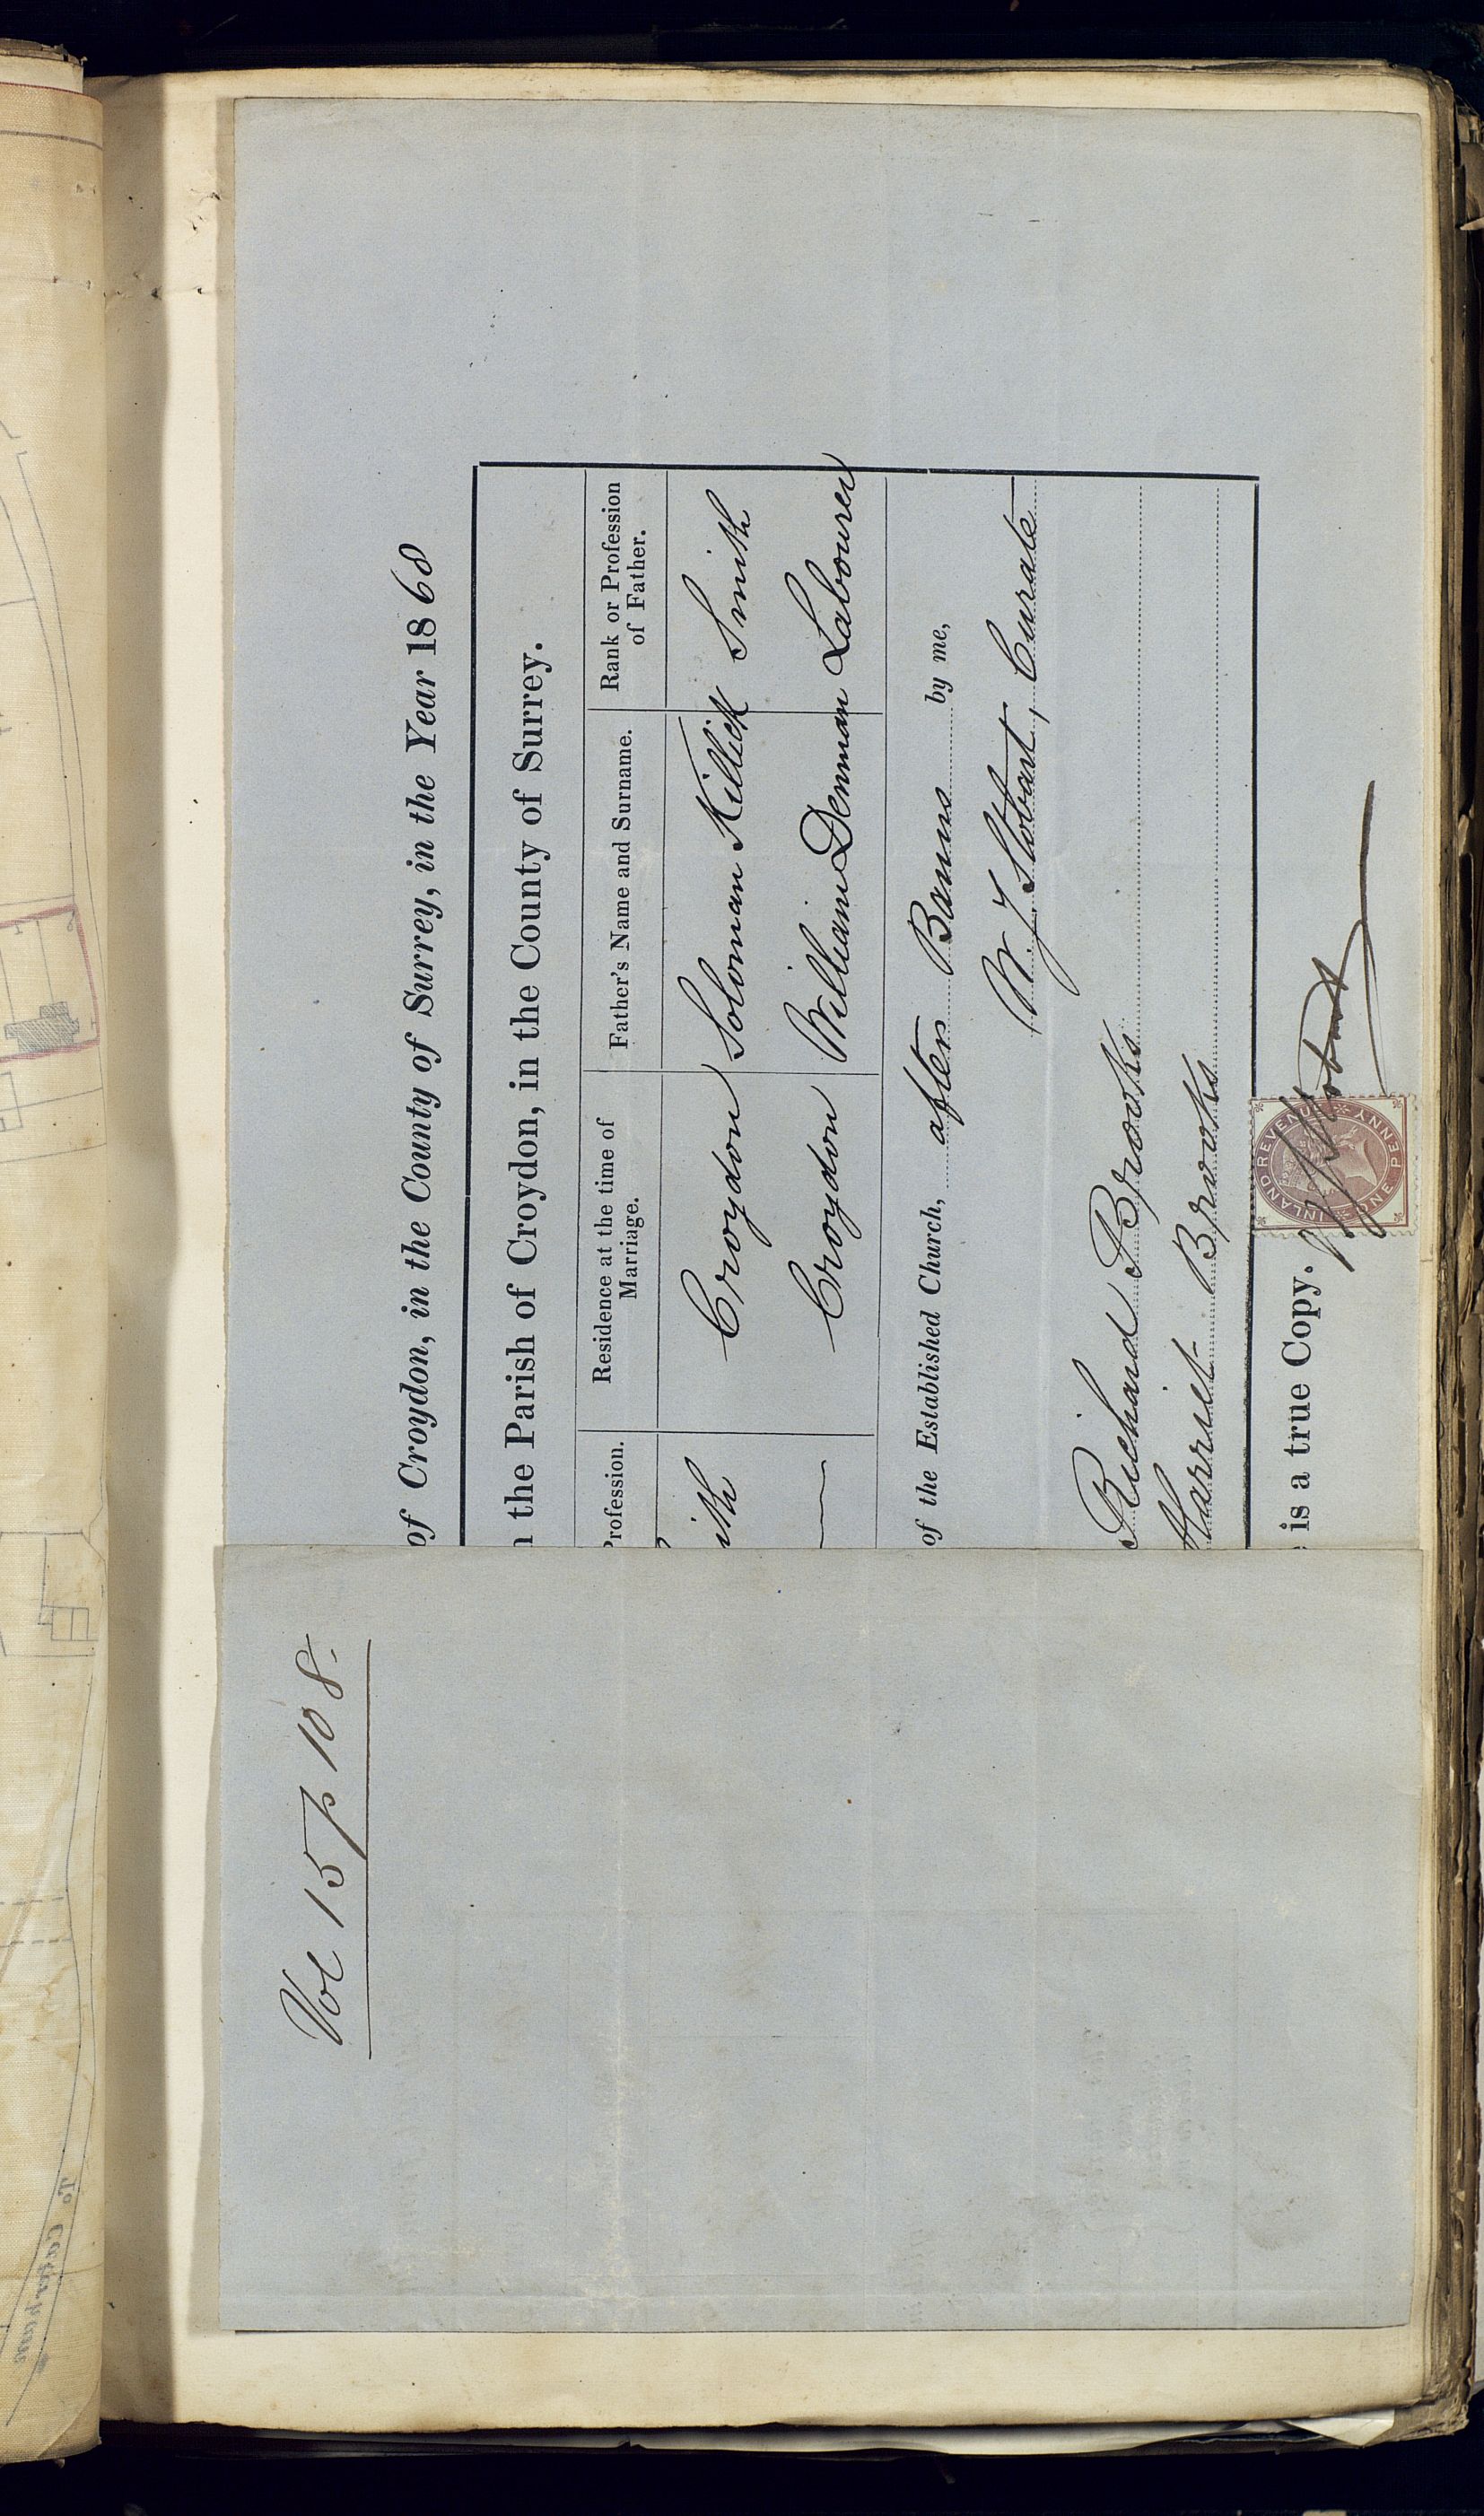 of Croydon, in the County of Surrey, in the Year 1868
n the Parish of Croydon, in the County of Surrey.
Profession.
Residence at the time of Marriage.
Father's Name and Surname.
Rank or Profession of Father.
ith Croydon Soloman Killick Smith
— Croydon William Denman Labourer
of the Established Church, after Banns by me,
W. J. Stobart, Curate
Richard Brooks
Harriet Brooks
is a true Copy. WJStobart
INLAND REVENUE
ONE PENNY
Vol 15 p 108.
To Caterham